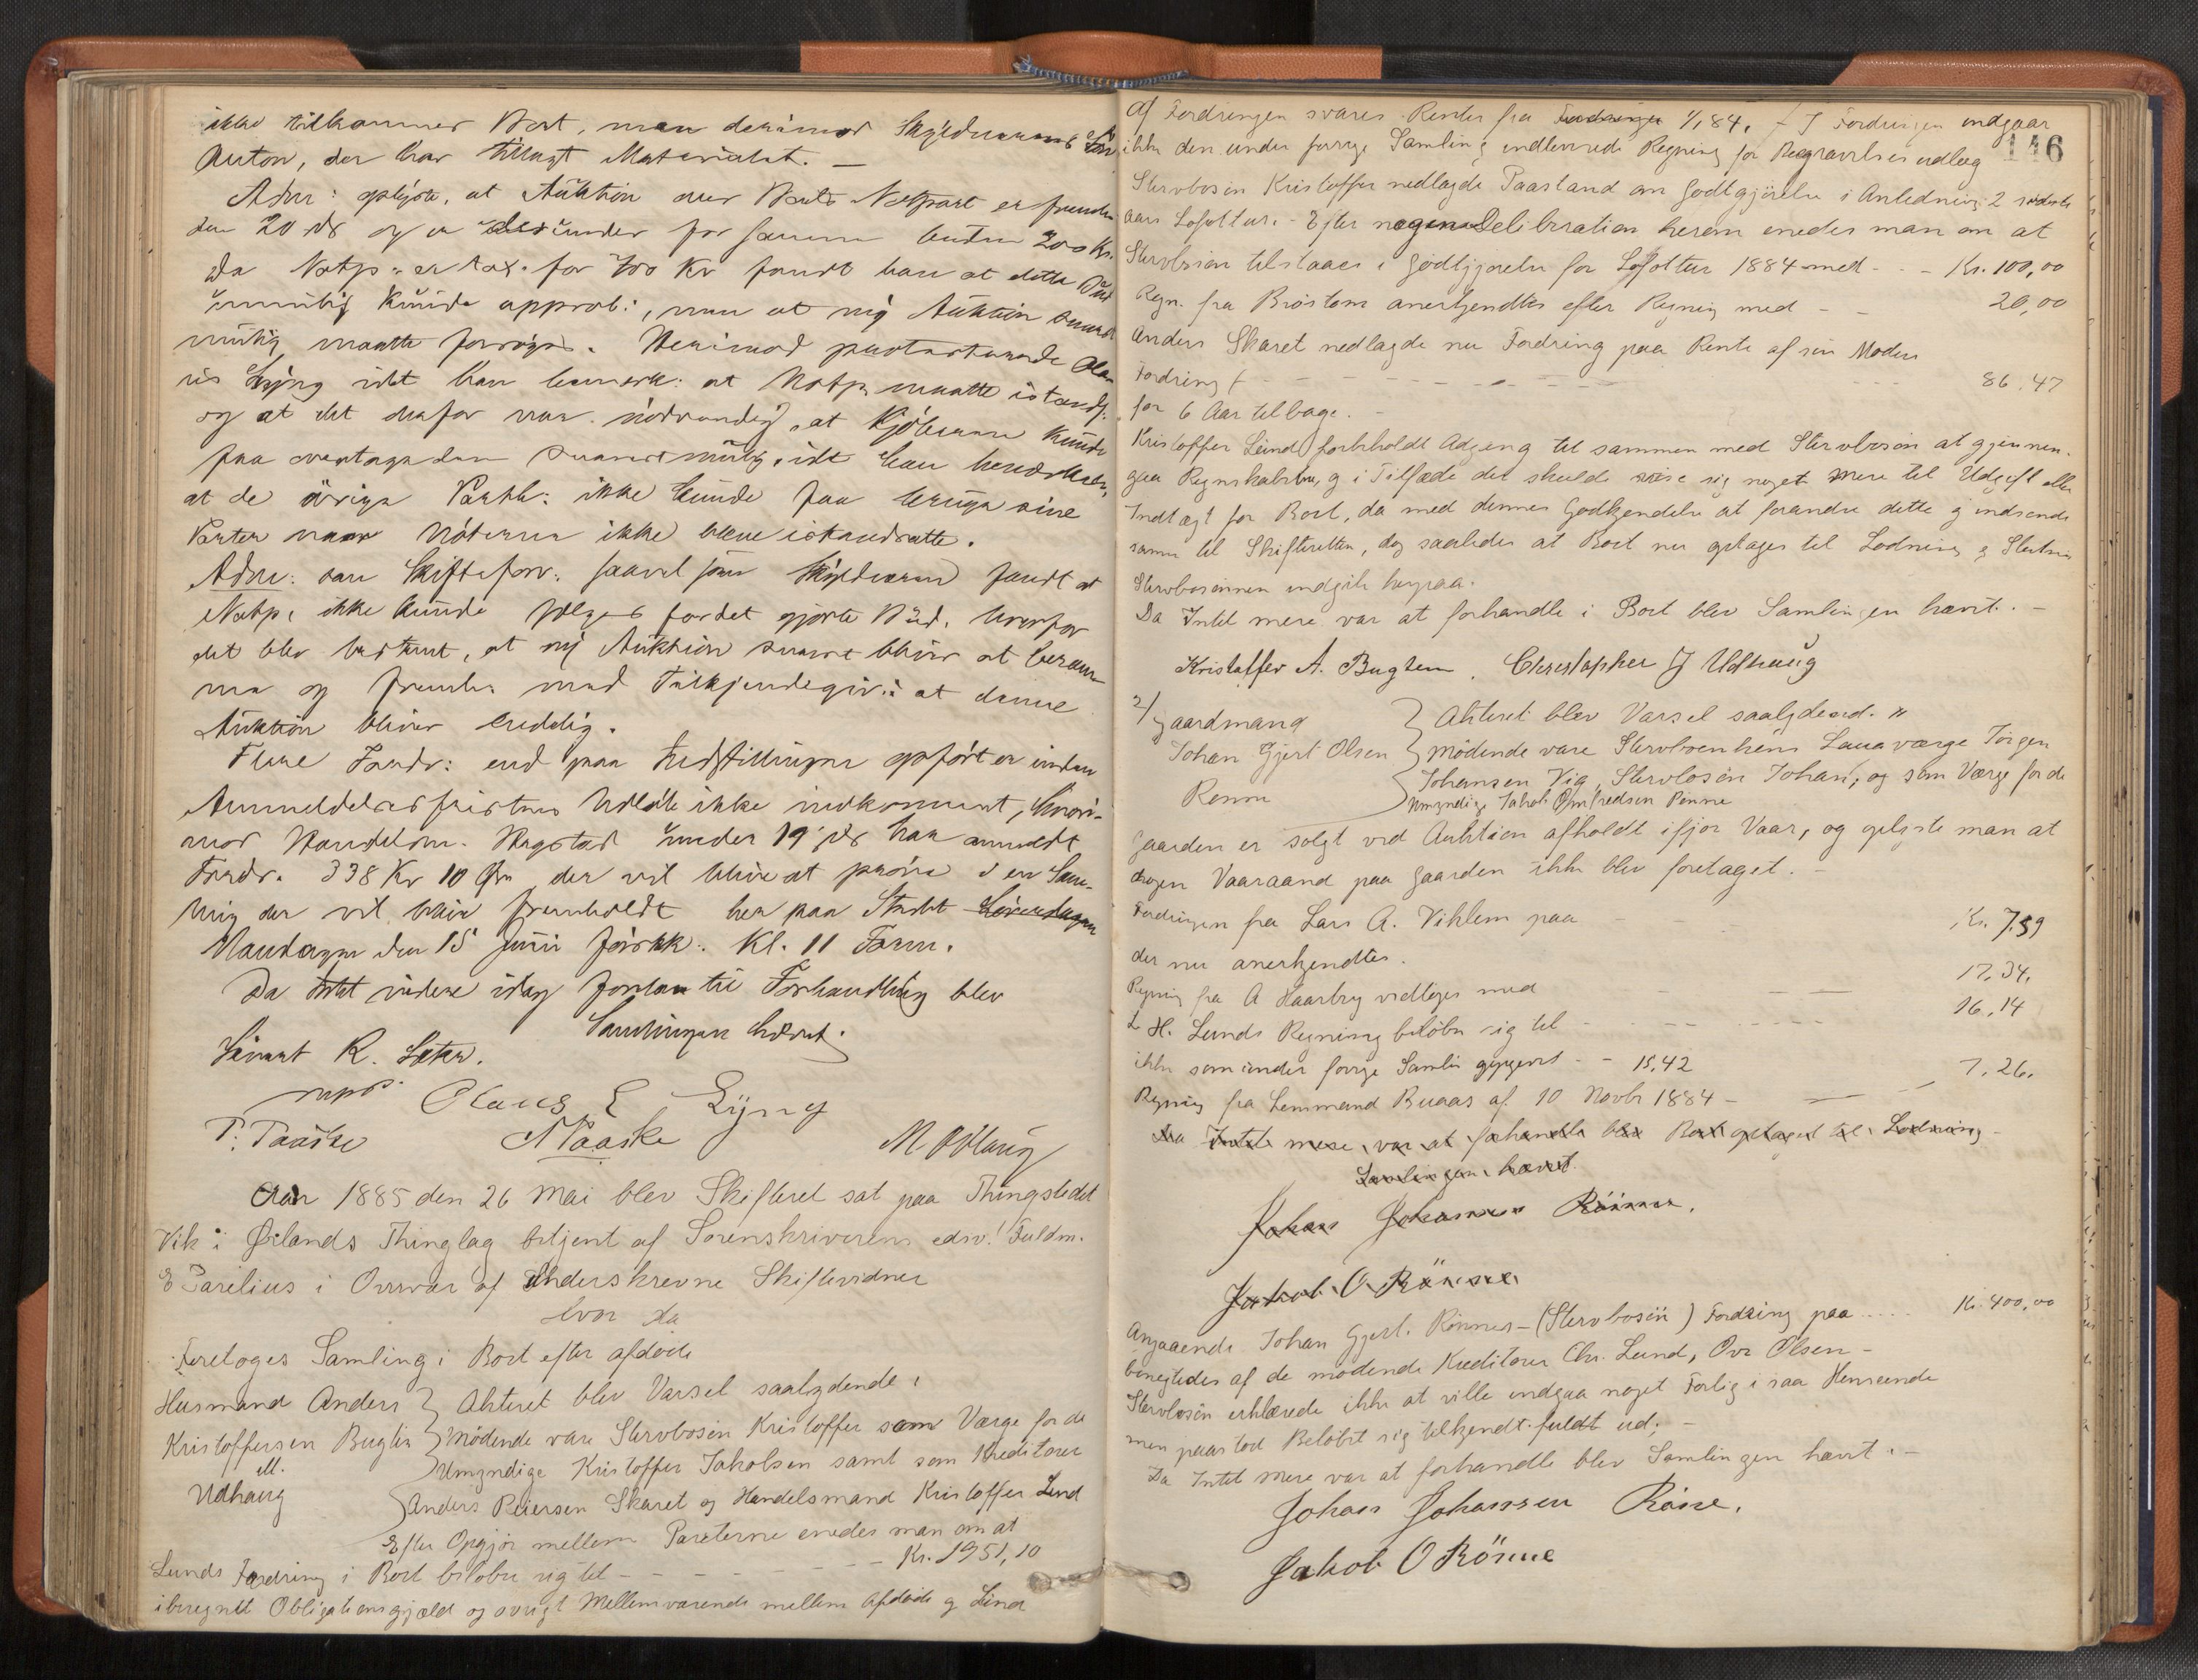 ikke tilkommer Boet, men derimod
Anton, der har tillagt Materialet. —
Adm: oplyste, at Auktion over Boets Notpart er
den 20 ds og er under for samme buden 200 Kr.
Da Notp. er tax. for 700 Kr fandt han at dette Bud
kunde approb:, men at ny Auktion snarest
mulig maatte forsøges. Derimod protesterede Ola-
us Lyng idet han bemærk: at Notp. maatte istands.
og at det derfor var nødvendig, at Kjøberne kunde
faa overtage den snarest mulig, idet han
at de øvrige Parth: ikke kunde faa bruge sine
Parter naar Nøterne ikke blev istandsatte.
Adm: som Skifteforv: saavel som fandt at
Notp. ikke kunde sælges for det gjorte Bud, hvorfor
det blev bestemt, at ny Auktion snarest bliver at beram-
me og fremh. med Tilkjendegiv: at denne
Auktion bliver endelig.
Flere Fordr: end paa opført er inden
Anmeldelsesfristens Udløb ikke indkommet, hvori-
mod Handelsm. under 19 ds har anmeldt
Fordr. 338 Kr 10 Øre der vil blive at prøve i en Sam-
ling der vil blive fremholdt her paa Stedet Løverdagen
Mandagen den 15 Juni førstk: Kl. 11 Form.
Da Intet videre idag forelaa til Forhandling blev
Samlingen hævet.
Sivert R.
mpP. Olaus E Lyng
P. Paaske N Paaske M Odhaug
Aar 1885 den 26 Mai blev Skifteret sat paa Thingstedet
Vik i Ørlands Thinglag betjent af Sorenskriverens edsv. Fuldm.
E Parelius i Overvær af Underskrevne Skiftevidner
hvor da
Foretoges Samling i Boet efter afdøde
Husmand Anders } Akteret blev Varsel saalydende:
Kristoffersen Bugten } Mødende vare Stervbosøn Kristoffer som Værge for de
u. Umyndige Kristoffer Jakobsen samt som Kreditorer
Udhaug Anders Peiersen Skaret og Handelsmand Kristoffer Lund
Efter Opgjør mellem Parterne enedes man om at
Lunds Fordring i Boet beløbe sig til - - - Kr. 1951,10
iberegnet Obligationsgjæld og øvrigt Mellemværende mellem Afdøde og Lund
146
Af Fordringen svares Renter fra 1/1 84. - I Fordringen indgaar
ikke den under forrige Samling indleverede Regning for Begravelses udlæg
Stervbosøn Kristoffer nedlagde Paastand om Godtgjørelse i Anledning 2 sidste
aars Lofottur. - Efter nogen Deliberation herom enedes man om at
Stervbosøn tilstaaes i Godtgjørelse for Lofottur 1884 med - - Kr. 100,00
Regn. fra Brøstom anerkjendtes efter Regning med - - 20,00
Anders Skaret nedlagde nu Fordring paa Rente af sin Moders
Fordring - - - 86,47
for 6 Aar tilbage. -
Kristoffer Lund forbeholdt Adgang til sammen med Stervbosøn at gjennem-
gaa Regnskabet, og i Tilfælde det skulde vise sig noget mere til Udgift eller
Indtægt for Boet, da med dennes Godkjendelse at forandre dette og indsende
samme til Skifteretten, dog saaledes at Boet nu optages til Lodning og Slutning
Stervbosønnen indgik herpaa.
Da Intet mere var at forhandle i Boet blev Samlingen hævet. -
Kristoffer A. Bugten, Christopher J Udhaug
2/
Gaardmand } Akteret blev Varsel saalydende. "
Johan Gjert Olsen } Mødende vare Stervboenkens Laugværge Jørgen
Rønne } Johansen Vig, Stervbosøn Johan, og som Værge for de
Umyndige Jakob Rønne
Gaarden er solgt ved Auktion afholdt ifjor Vaar, og oplyste man at
nogen Vaaraand paa Gaarden ikke blev foretaget. -
Fordringen fra Lars A. Viklem paa - - Kr. 7.59
der nu anerkjendtes.
Regning fra A Haarberg vedtoges med - - 17,34.
L H. Lunds Regning beløbe sig til - - 16,14
ikke som under forrige Samling opgivet - - 15,42
Regning fra Lensmand Buaas af 10 Novbr 1884 - - 7,26.
Da Intet mere var at forhandle blev Boet optaget til Lodning
Samlingen hævet.
Johan Johansen Rönne.
Jakob O Rönne
Angaaende Johan Gjert. Rønnes - (Stervbosøn) Fordring paa .... Kr. 400,00
benegtedes af de mødende Kreditorer Chr. Lund, Ove Olsen -
Stervbosøn erklærede ikke at ville indgaa noget Forlig i saa Henseende
men paastod Beløbet sig tilkjendt fuldt ud; -
Da Intet mere var at forhandle blev Samlingen hævet. -
Johan Johansen Röne.
Jakob O Rönne